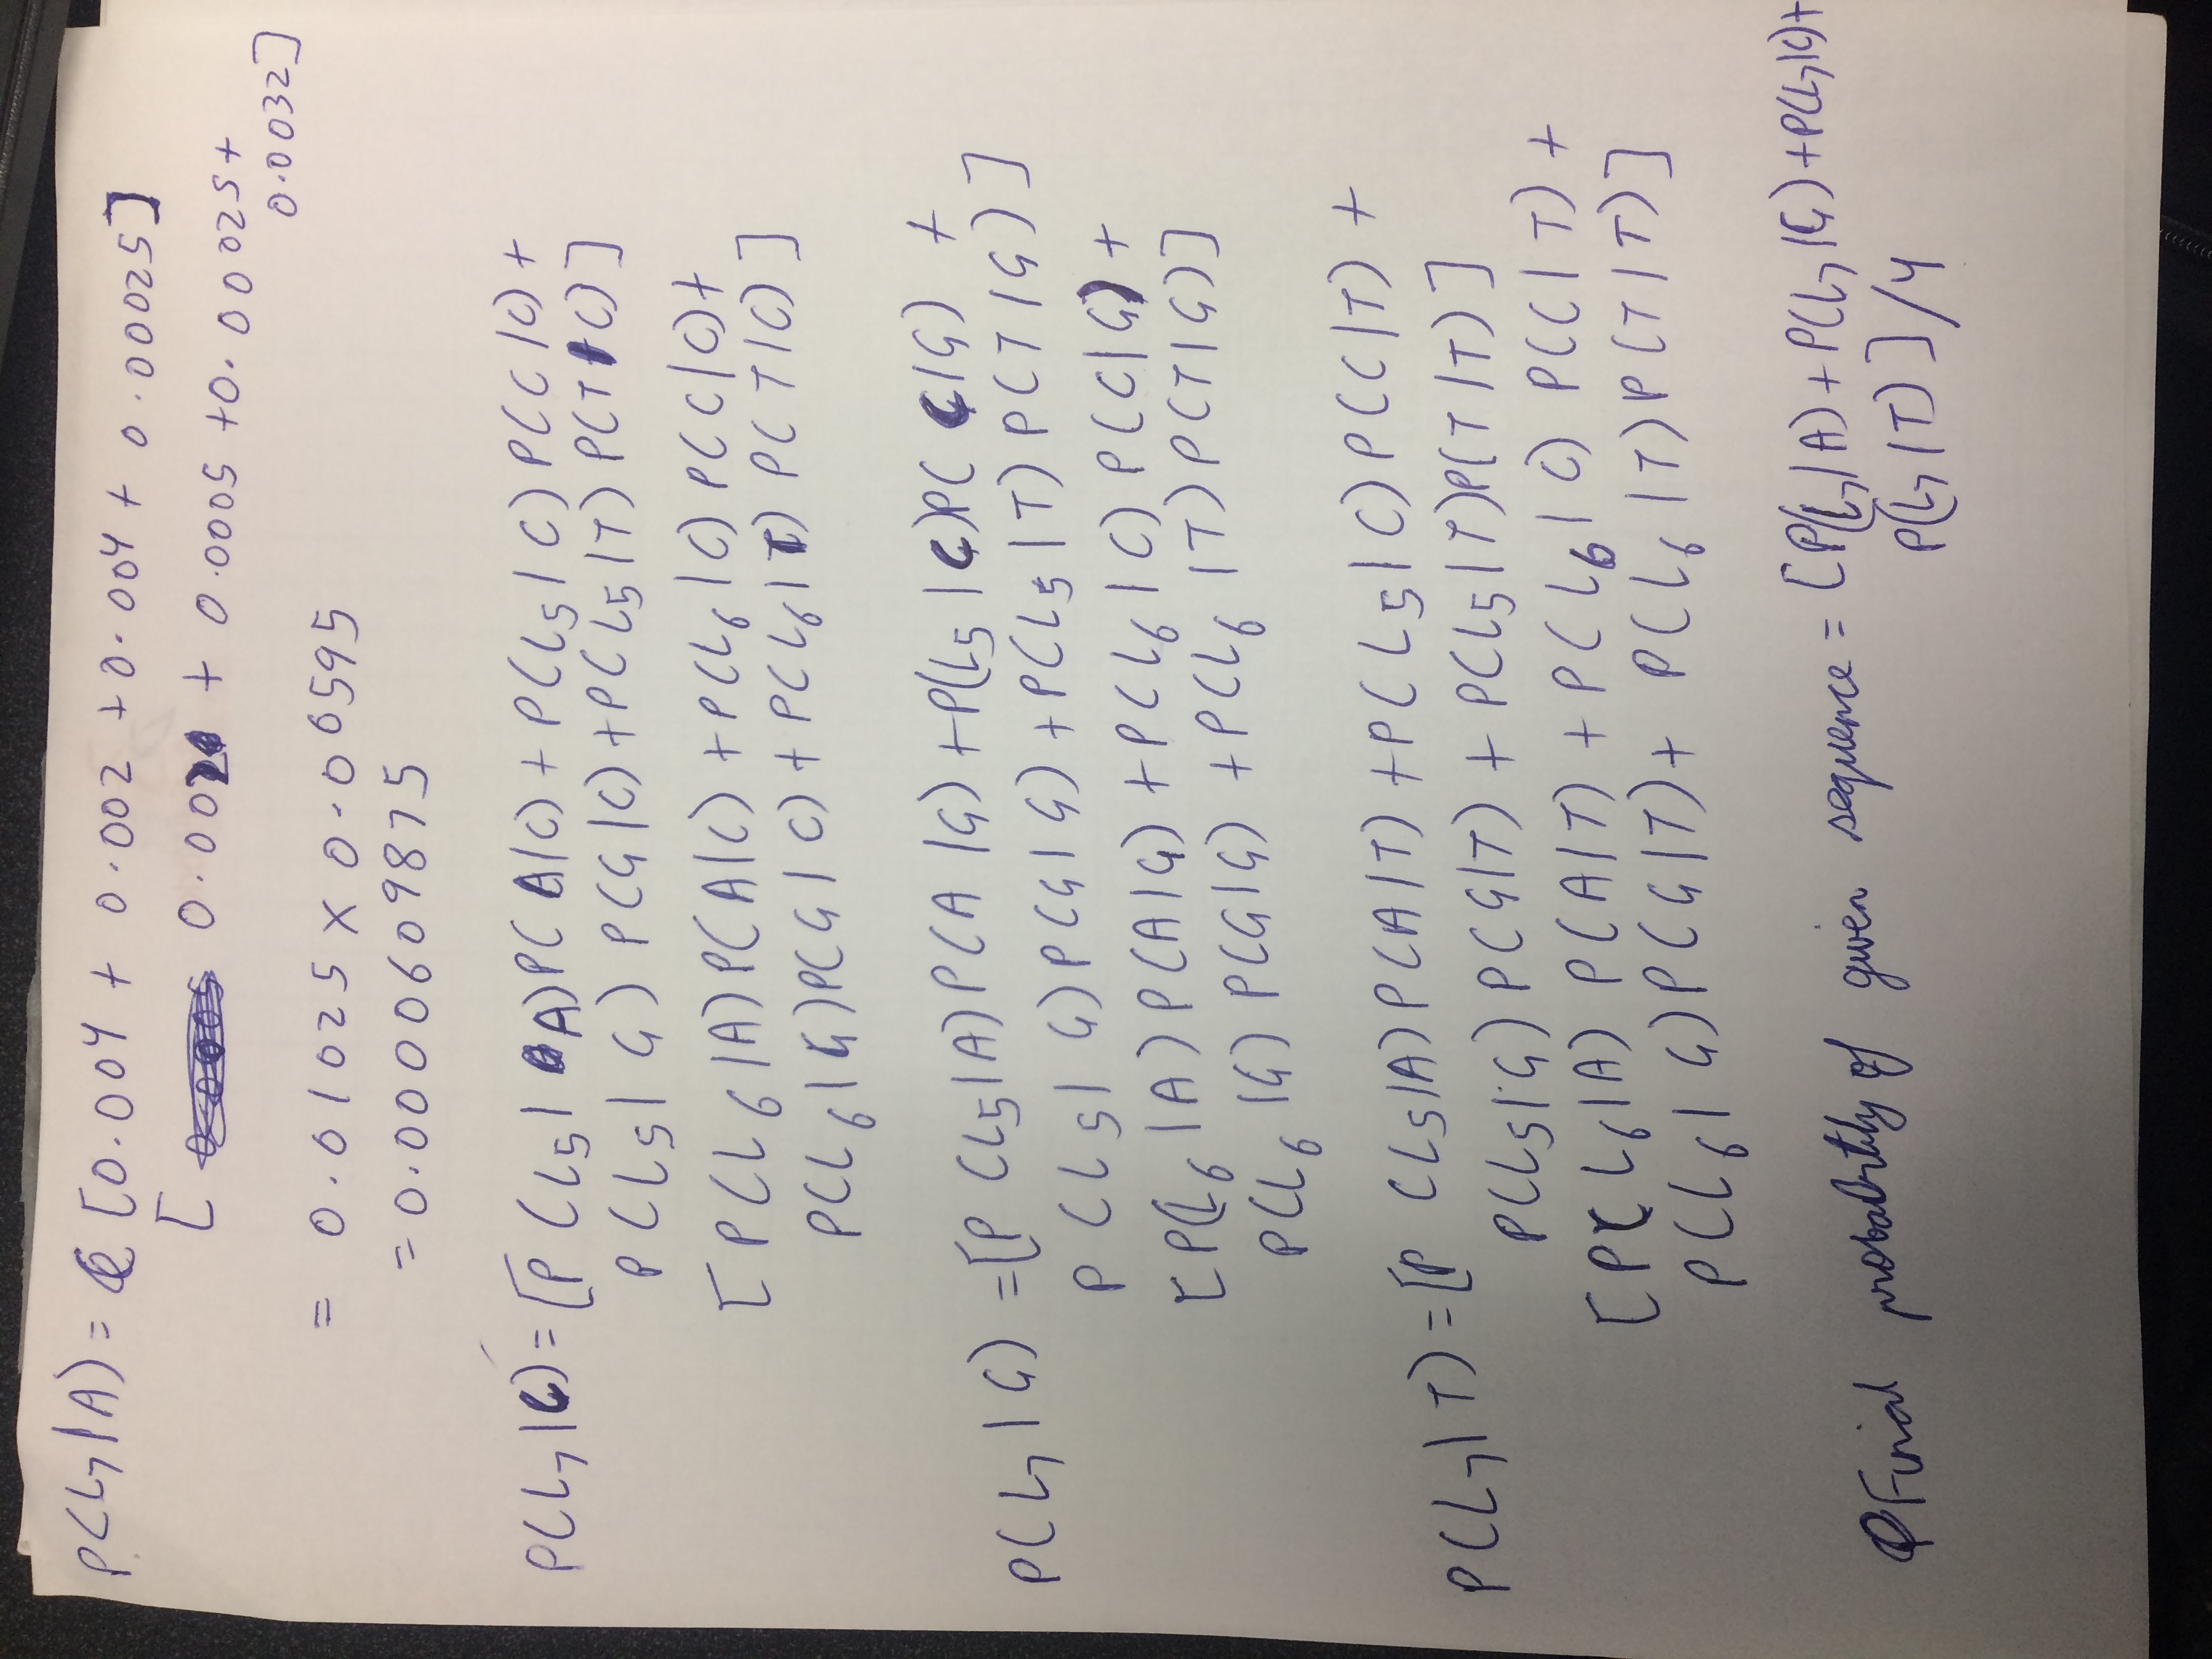 P(L7|A) = [0.004 + 0.002 + 0.004 + 0.00025]
[ 0.002 + 0.0005 + 0.00025 +
0.0032]
= 0.01025 × 0.00595
= 0.0000609875
P(L7|C) = [P(L5|A)P(A|C) + P(L5|C)P(C|C) +
P(L5|G)P(G|C) + P(L5|T)P(T|C)]
[P(L6|A)P(A|C) + P(L6|C)P(C|C) +
P(L6|G)P(G|C) + P(L6|T)P(T|C)]
P(L7|G) = [P(L5|A)P(A|G) + P(L5|C)P(C|G) +
P(L5|G)P(G|G) + P(L5|T)P(T|G)]
[P(L6|A)P(A|G) + P(L6|C)P(C|G) +
P(L6|G)P(G|G) + P(L6|T)P(T|G)]
P(L7|T) = [P(L5|A)P(A|T) + P(L5|C)P(C|T) +
P(L5|G)P(G|T) + P(L5|T)P(T|T)]
[P(L6|A)P(A|T) + P(L6|C)P(C|T) +
P(L6|G)P(G|T) + P(L6|T)P(T|T)]
Final probability of given sequence = [P(L7|A) + P(L7|G) + P(L7|C) +
P(L7|T)]/4